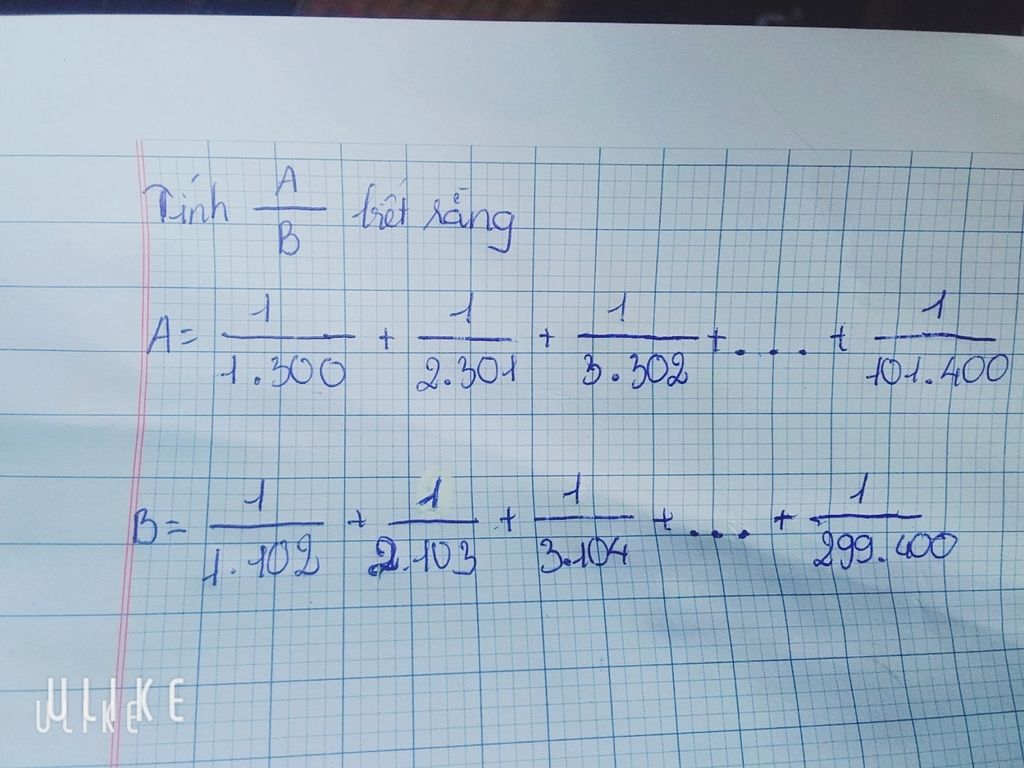 Tính A/B biết rằng
A = 1/1.300 + 1/2.301 + 1/3.302 + .... + 1/101.400
B = 1/1.102 + 1/2.103 + 1/3.104 + .... + 1/299.400
ULIKE
ULIKE